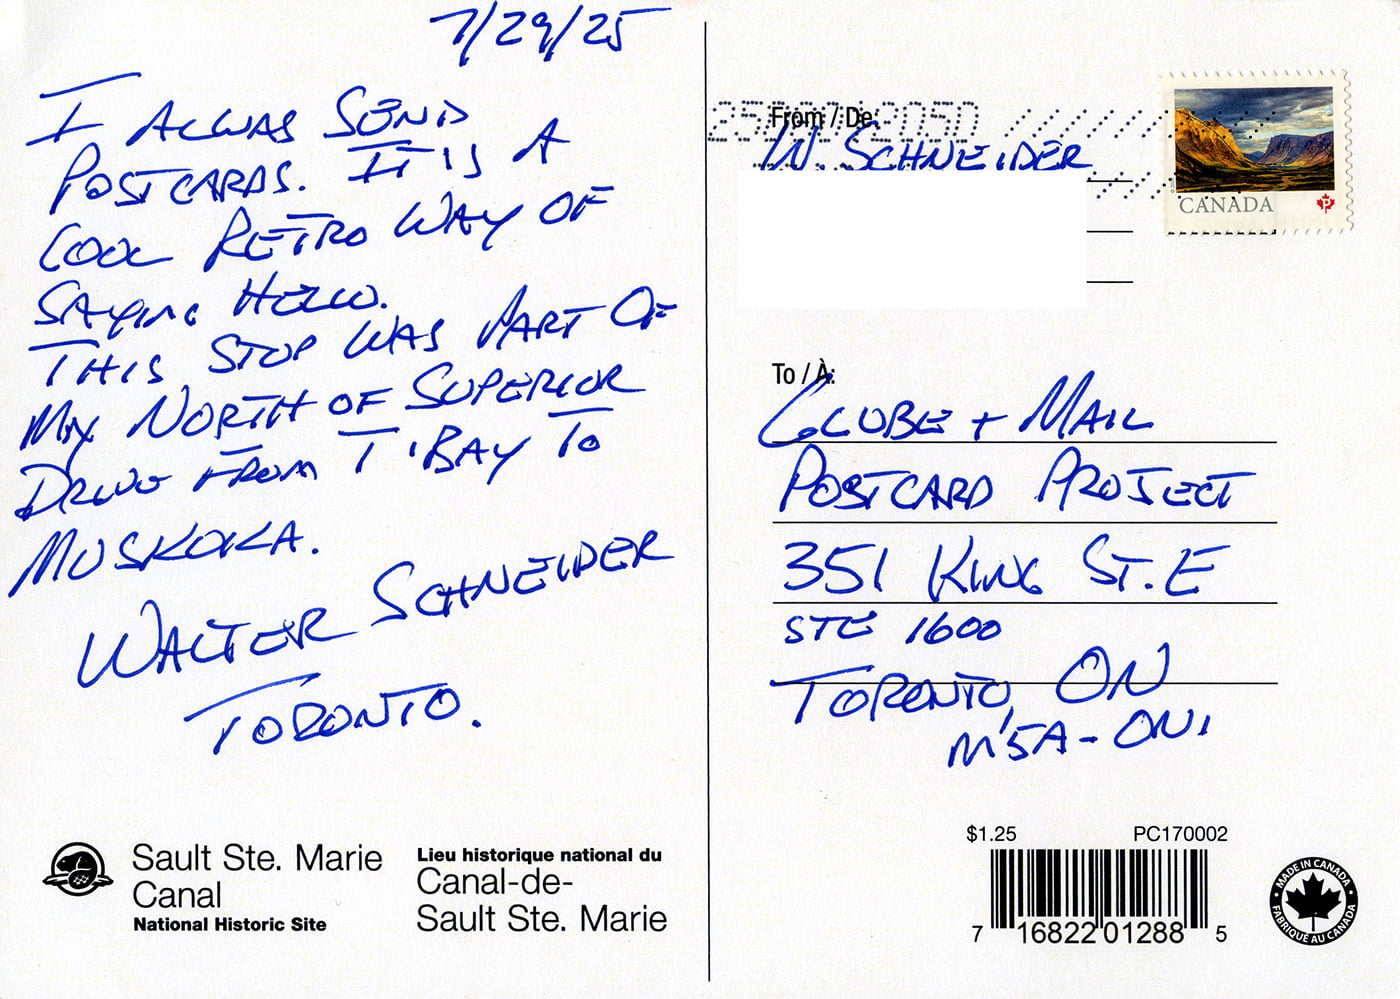 7/29/25
I ALWAS SEND
POSTCARDS. IT IS A
COOL RETRO WAY OF
SAYING HELLO.
THIS STOP WAS PART OF
MY NORTH OF SUPERIOR
DRIVE FROM T'BAY TO
MUSKOKA.
WALTER SCHNEIDER
TORONTO.
Sault Ste. Marie
Canal
National Historic Site
Lieu historique national du
Canal-de-
Sault Ste. Marie
From / De
W. SCHNEIDER
CANADA
P
To / À:
GLOBE + MAIL
POSTCARD PROJECT
351 KING ST. E
STE 1600
TORONTO, ON
M5A-0N1
$1.25 PC170002
7 16822 01288 5
MADE IN CANADA
FABRIQUÉ AU CANADA